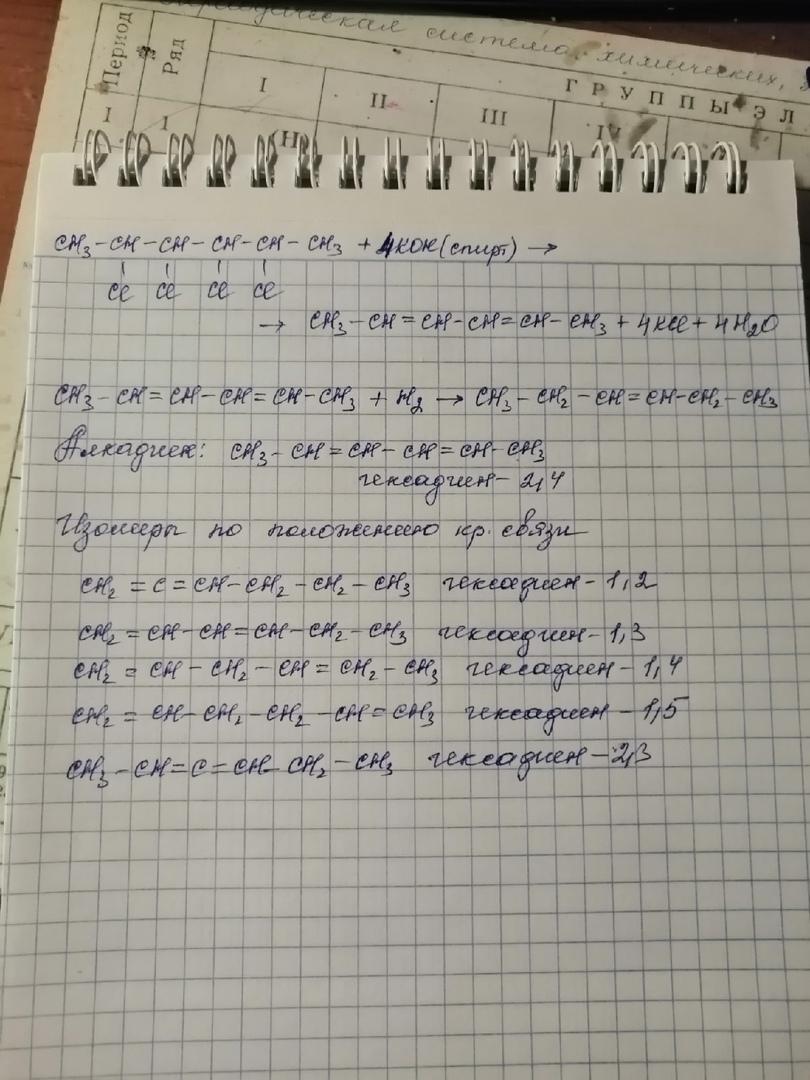 Периодическая система химических,
Период
Ряд
ГРУППЫ ЭЛ
I
II
III
IV
I
I
(H
CH₃-CH-CH-CH-CH-CH₃ + 4KOH(спирт) →
Cl Cl Cl Cl
→ CH₃-CH=CH-CH=CH-CH₃ + 4KCl + 4H₂O
CH₃-CH=CH-CH=CH-CH₃ + H₂ → CH₃-CH₂-CH=CH-CH₂-CH₃
Алкадиен: CH₃-CH=CH-CH=CH-CH₃
гексадиен-2,4
Изомеры по положению кр. связи
CH₂=C=CH-CH₂-CH₂-CH₃ гексадиен-1,2
CH₂=CH-CH=CH-CH₂-CH₃ гексадиен-1,3
CH₂=CH-CH₂-CH=CH₂-CH₃ гексадиен-1,4
CH₂=CH-CH₂-CH₂-CH=CH₃ гексадиен-1,5
CH₃-CH=C=CH-CH₂-CH₃ гексадиен-2,3